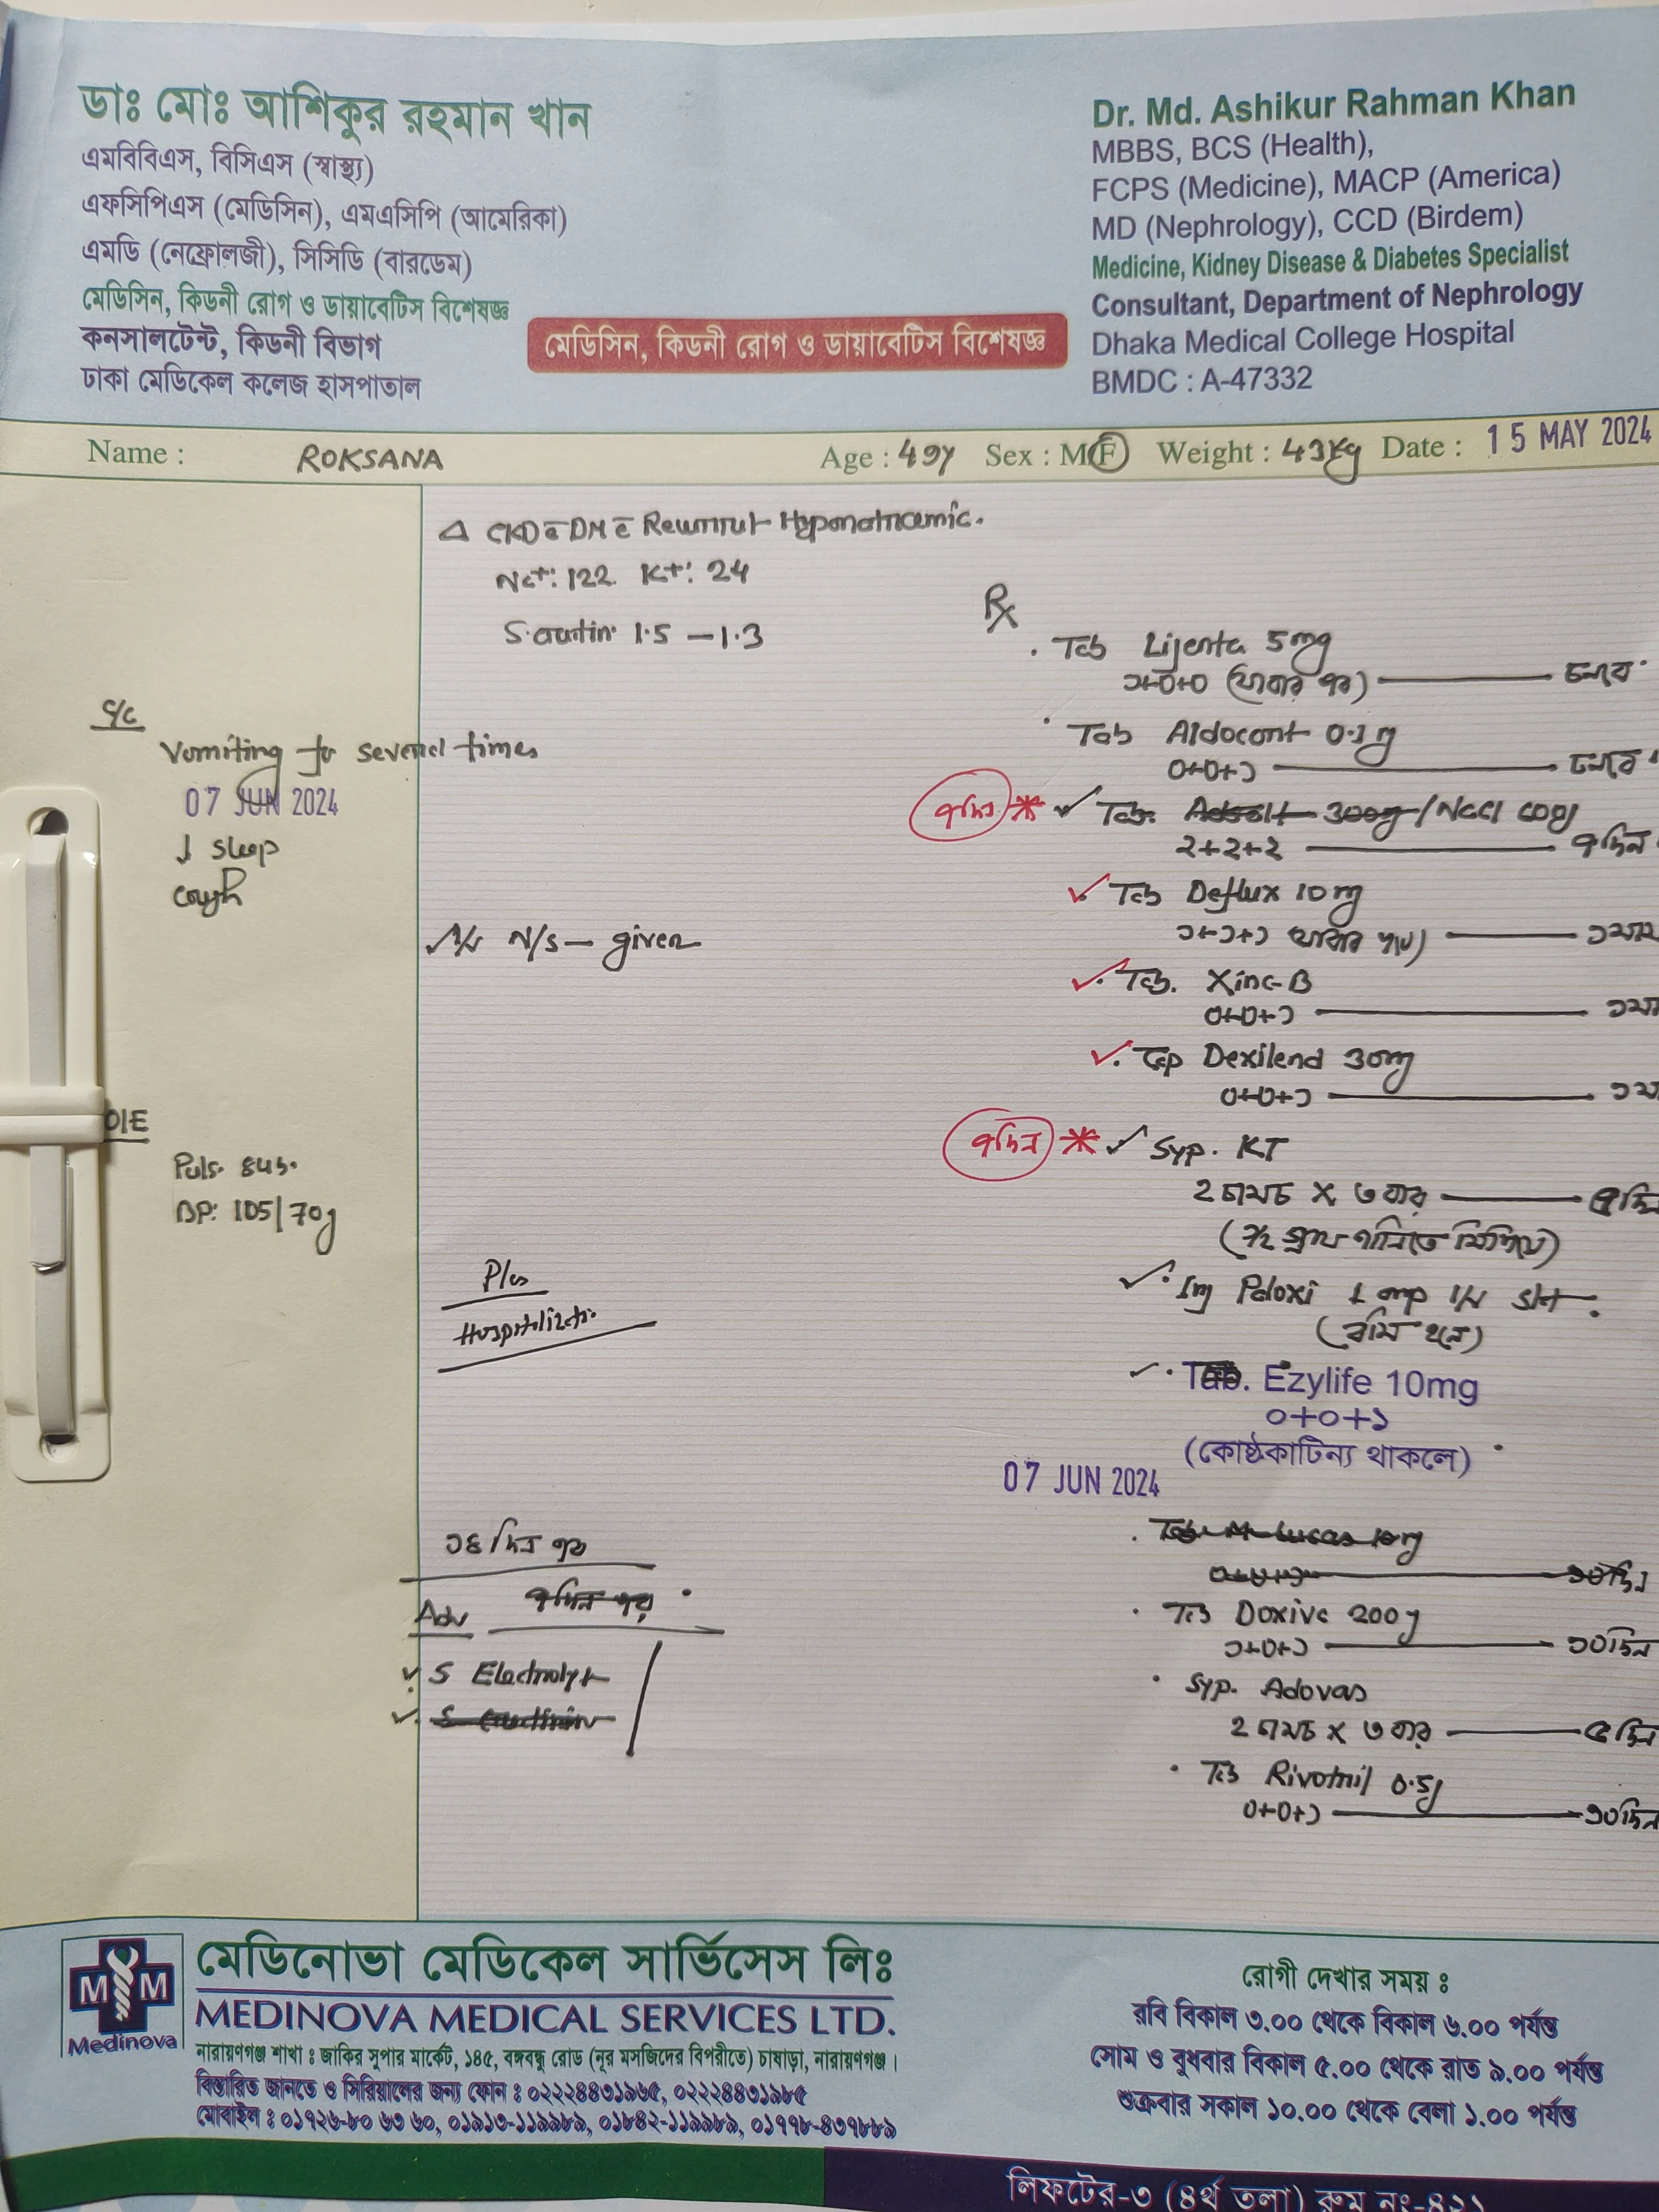 ডাঃ মোঃ আশিকুর রহমান খান
এমবিবিএস, বিসিএস (স্বাস্থ্য)
এফসিপিএস (মেডিসিন), এমএসিপি (আমেরিকা)
এমডি (নেফ্রোলজী), সিসিডি (বারডেম)
মেডিসিন, কিডনী রোগ ও ডায়াবেটিস বিশেষজ্ঞ
কনসালটেন্ট, কিডনী বিভাগ
ঢাকা মেডিকেল কলেজ হাসপাতাল
মেডিসিন, কিডনী রোগ ও ডায়াবেটিস বিশেষজ্ঞ
Dr. Md. Ashikur Rahman Khan
MBBS, BCS (Health),
FCPS (Medicine), MACP (America)
MD (Nephrology), CCD (Birdem)
Medicine, Kidney Disease & Diabetes Specialist
Consultant, Department of Nephrology
Dhaka Medical College Hospital
BMDC : A-47332
Name : ROKSANA Age : 49y Sex : M F Weight : 43kg Date : 15 MAY 2024
Δ CKD c̄ DM c̄
Na+: 122. K+: 24
1.5 – 1.3
C/C
Vomiting for several times
07 JUN 2024
↓ sleep
cough
N/S – given
O/E
Puls.
BP: 105/70
Plan
১৪ দিন পর
Adv ৭দিন পর
S Electrolyt
Rx
Tab Lijenta 5mg
১+০+০ (খাবার পর) চলবে
Tab
০+০+১ চলবে
৭দিন * Tab. 300mg/NaCl
২+২+২ ৭দিন
Tab Deflux 10mg
১+১+১
Tab. Xinc-B
০+০+১
Cap Dexilend 30mg
০+০+১
৭দিন * Syp. KT
২ চামচ x ৩ বার
(১/২ গ্লাস পানিতে মিশিয়ে)
Inj Paloxi 1 amp I/V stat.
(বমি হলে)
Tab. Ezylife 10mg
০+০+১
(কোষ্ঠকাটিন্য থাকলে)
07 JUN 2024
Tab M-lucas 10mg
০+০+১ ১০দিন
Tab Doxiva 200mg
১+০+১ ১০দিন
Syp. Adovas
২ চামচ x ৩ বার ৫দিন
Tab Rivotril 0.5mg
০+০+১ ১০দিন
M M
Medinova
মেডিনোভা মেডিকেল সার্ভিসেস লিঃ
MEDINOVA MEDICAL SERVICES LTD.
নারায়ণগঞ্জ শাখা : জাকির সুপার মার্কেট, ১৪৫, বঙ্গবন্ধু রোড (নূর মসজিদের বিপরীতে) চাষাড়া, নারায়ণগঞ্জ।
বিস্তারিত জানতে ও সিরিয়ালের জন্য ফোন : ০২২২৪৪৩১৯৬৫, ০২২২৪৪৩১৯৮৫
মোবাইল : ০১৯২৬-৮০ ৬৩ ৬০, ০১৯১৩-১১৯৯৮৯, ০১৮৪২-১১৯৯৮৯, ০১৭৭৮-৪৩৭৮৮৯
রোগী দেখার সময় :
রবি বিকাল ৩.০০ থেকে বিকাল ৬.০০ পর্যন্ত
সোম ও বুধবার বিকাল ৫.০০ থেকে রাত ৯.০০ পর্যন্ত
শুক্রবার সকাল ১০.০০ থেকে বেলা ১.০০ পর্যন্ত
লিফটের-৩ (৪র্থ তলা) রুম নং-৪২১